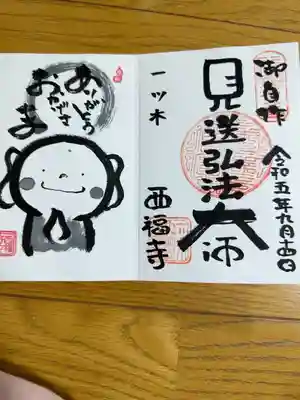 御自作
令和五年九月十四日
見送弘法大師
一ツ木
西福寺
ありがとう
おかげさ
ま